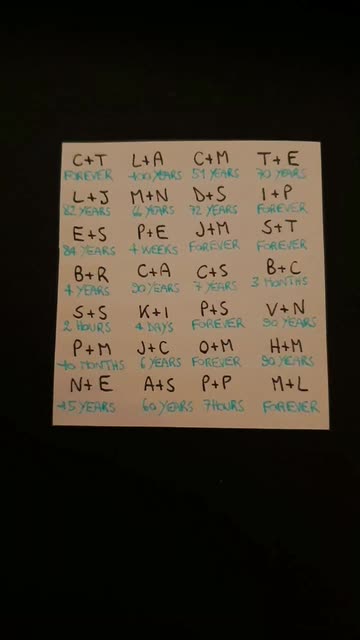 C+T L+A C+M T+E
FOREVER 100 YEARS 51 YEARS 70 YEARS
L+J M+N D+S I+P
82 YEARS 66 YEARS 72 YEARS FOREVER
E+S P+E J+M S+T
84 YEARS 4 WEEKS FOREVER FOREVER
B+R C+A C+S B+C
4 YEARS 90 YEARS 7 YEARS 3 MONTHS
S+S K+I P+S V+N
2 HOURS 4 DAYS FOREVER 90 YEARS
P+M J+C O+M H+M
10 MONTHS 6 YEARS FOREVER 90 YEARS
N+E A+S P+P M+L
15 YEARS 60 YEARS 7 HOURS FOREVER